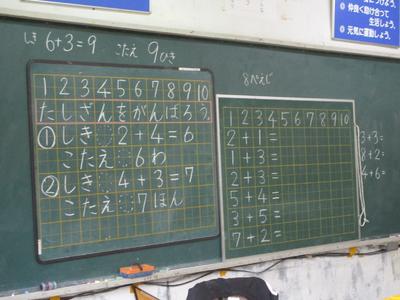 つけよう。
仲良く助け合って
生活しよう。
元気に運動しよう。
しき 6+3=9 こたえ 9ひき
1 2 3 4 5 6 7 8 9 10
たしざんをがんばろう。
① しき 2+4=6
こたえ 6わ
② しき 4+3=7
こたえ 7ほん
8ぺえじ
1 2 3 4 5 6 7 8 9 10
2+1=
1+3=
2+3=
5+4=
3+5=
7+2=
3+3=
8+2=
4+6=